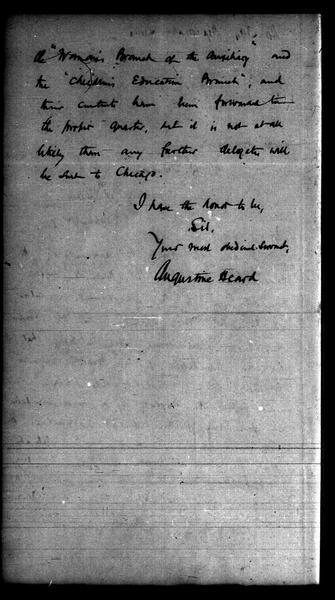 the "Woman's Branch of the Auxiliary" and
the "Children's Education Branch", and
their contents have been forwarded to
the proper quarter, but it is not at all
likely that any further delegates will
be sent to Chicago.
I have the honor to be,
Sir,
Your most obedient servant,
Augustine Heard